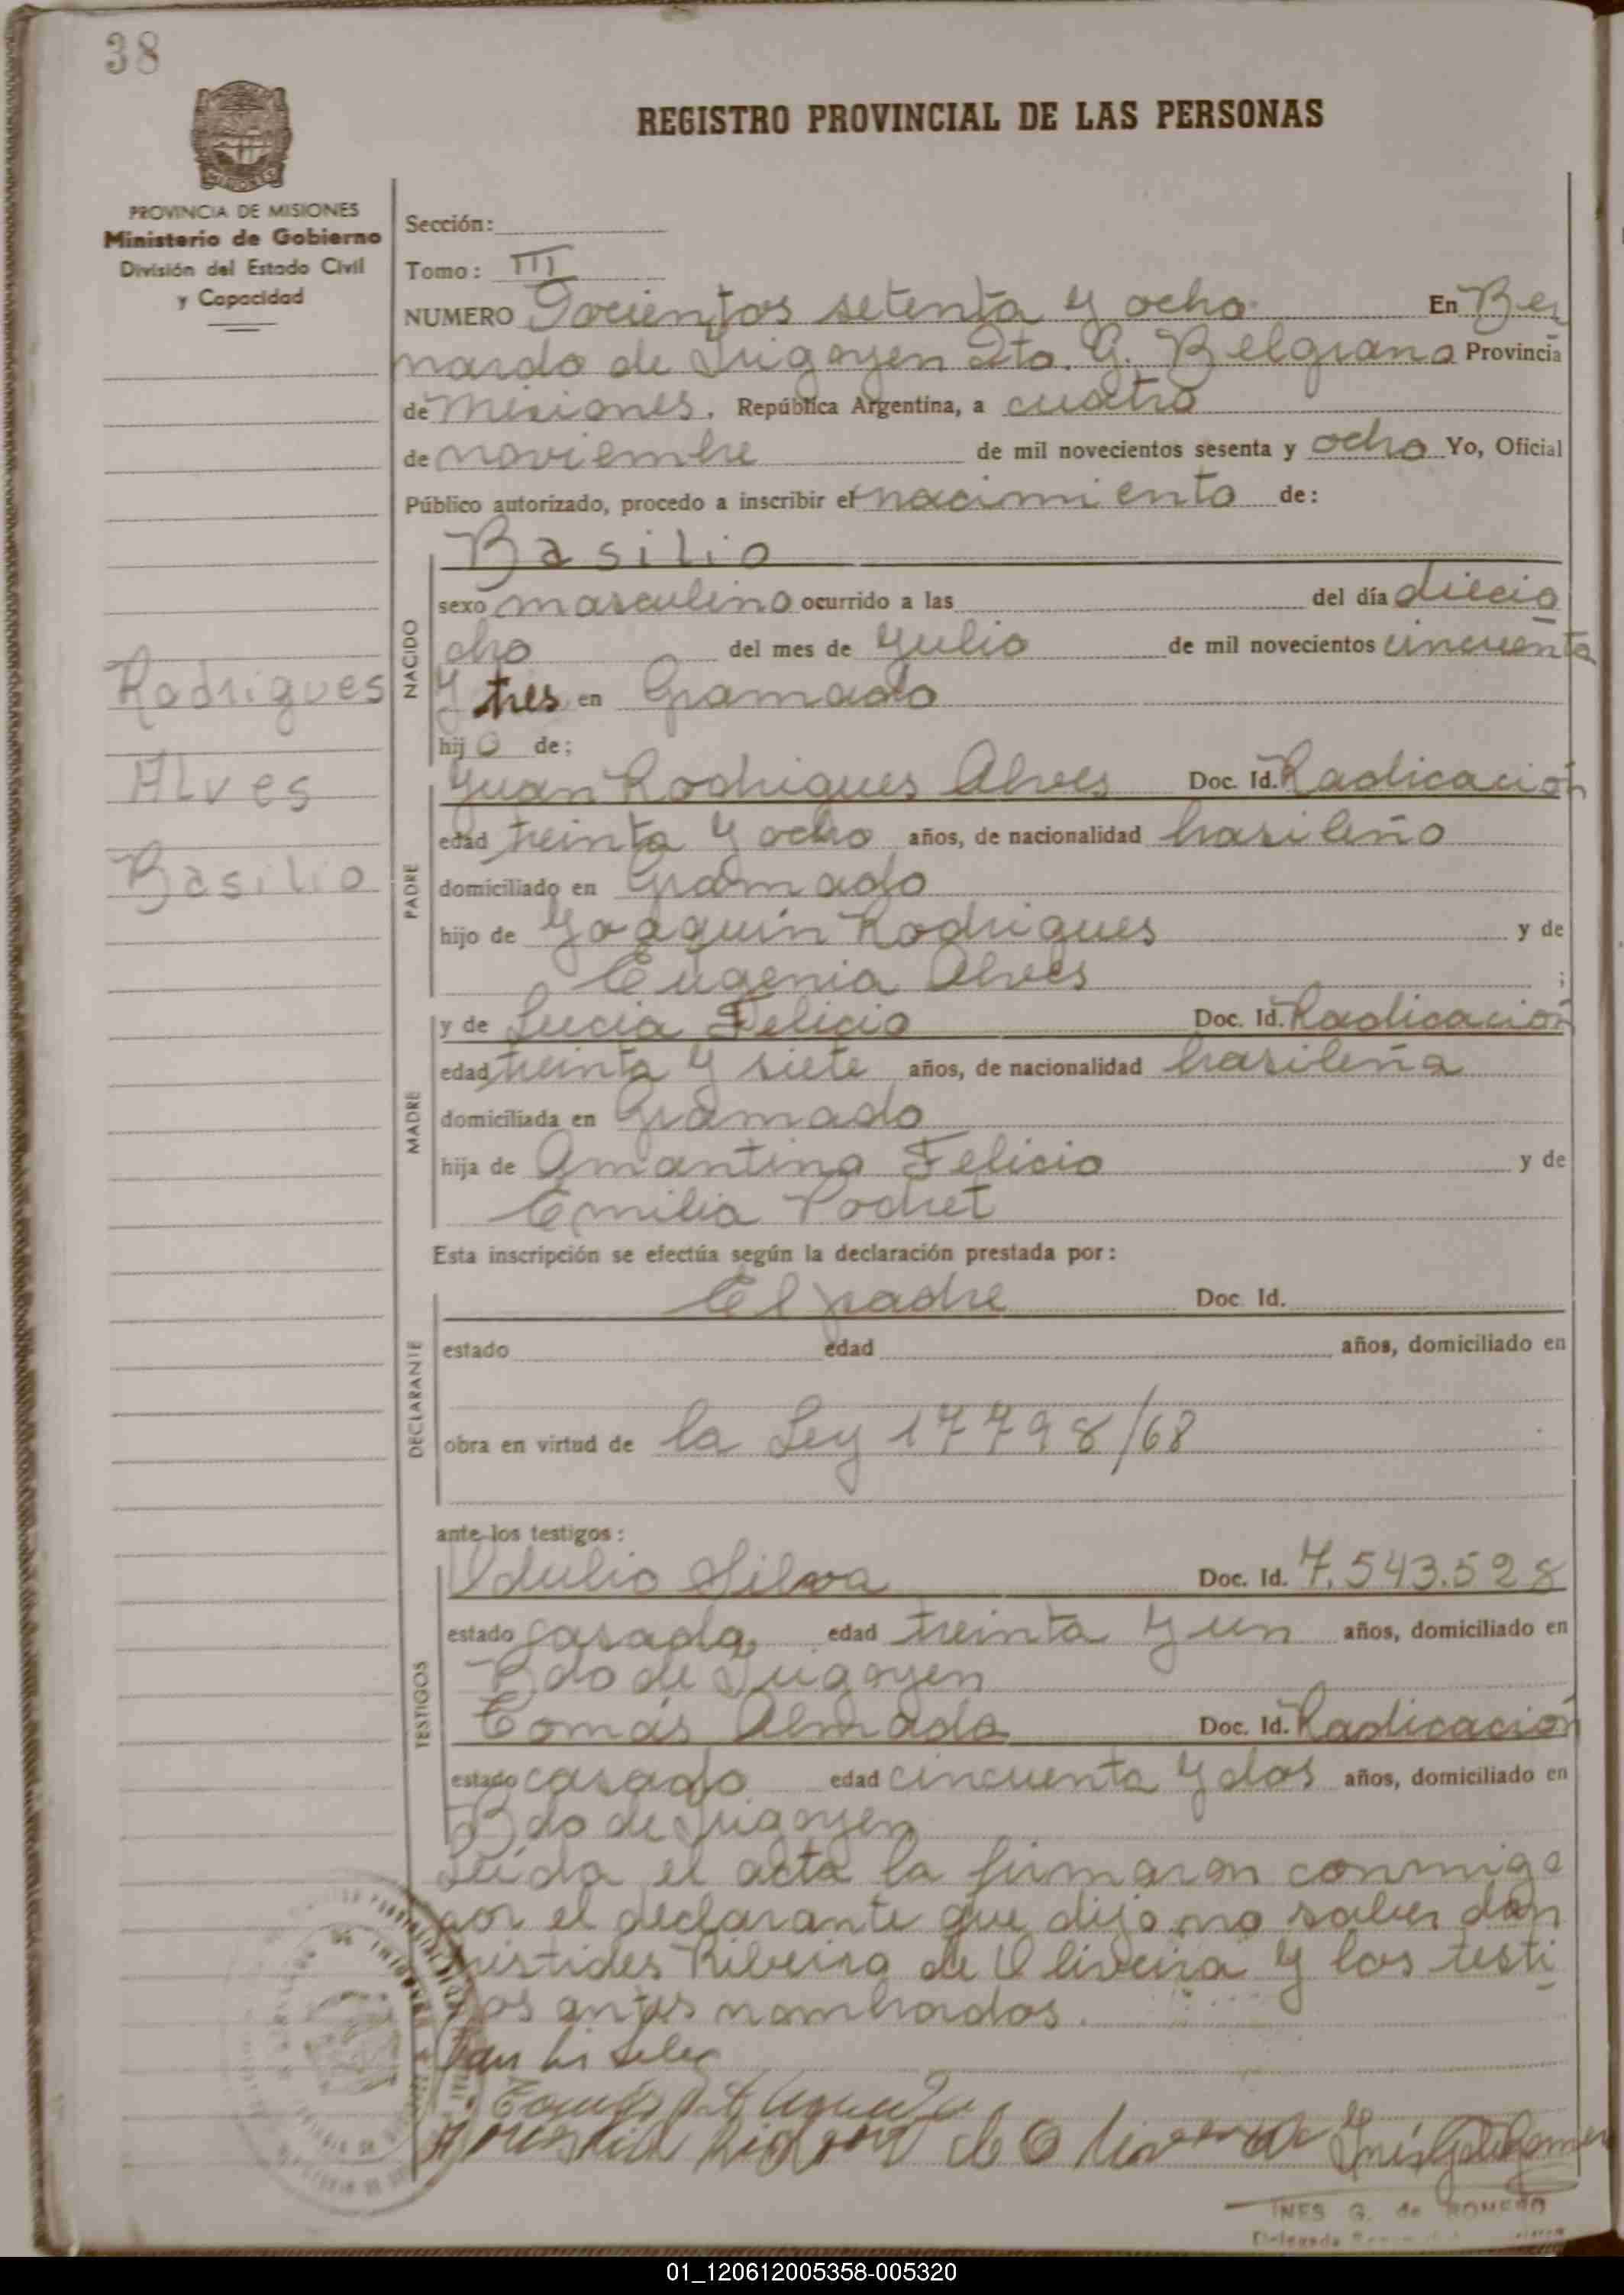 38
REGISTRO PROVINCIAL DE LAS PERSONAS
PROVINCIA DE MISIONES
Ministerio de Gobierno
División del Estado Civil
y Capacidad
Sección:
Tomo: III
NUMERO Docientos setenta y ocho En Ber
nardo de Irigoyen Dto. G. Belgrano Provincia
de Misiones, República Argentina, a cuatro
de noviembre de mil novecientos sesenta y ocho Yo, Oficial
Público autorizado, procedo a inscribir el nacimiento de:
Basilio
NACIDO
sexo masculino ocurrido a las del día diecio
cho del mes de Julio de mil novecientos cincuenta
y tres en Gramado
hijo de;
Rodrigues
Alves
Basilio
PADRE
Juan Rodrigues Alves Doc. Id. Radicación
edad treinta y ocho años, de nacionalidad brasileño
domiciliado en Gramado
hijo de Joaquín Rodrigues y de
Eugenia Alves ;
MADRE
y de Lucia Felicio Doc. Id. Radicación
edad treinta y siete años, de nacionalidad brasileña
domiciliada en Gramado
hija de Amantino Felicio y de
Emilia
Esta inscripción se efectúa según la declaración prestada por:
DECLARANTE
El padre Doc. Id.
estado edad años, domiciliado en
obra en virtud de la Ley 17798/68
ante los testigos:
TESTIGOS
Silva Doc. Id. 7.543.528
estado casado edad treinta y un años, domiciliado en
Bdo de Irigoyen
Tomás Almada Doc. Id. Radicación
estado casado edad cincuenta y dos años, domiciliado en
Bdo de Irigoyen
Leída el acta la firmaron conmigo
por el declarante que dijo no saber don
Aristides Ribeiro de Oliveira y los testi
gos antes nombrados.
INES G. de ROMERO
Delegada
01_120612005358-005320